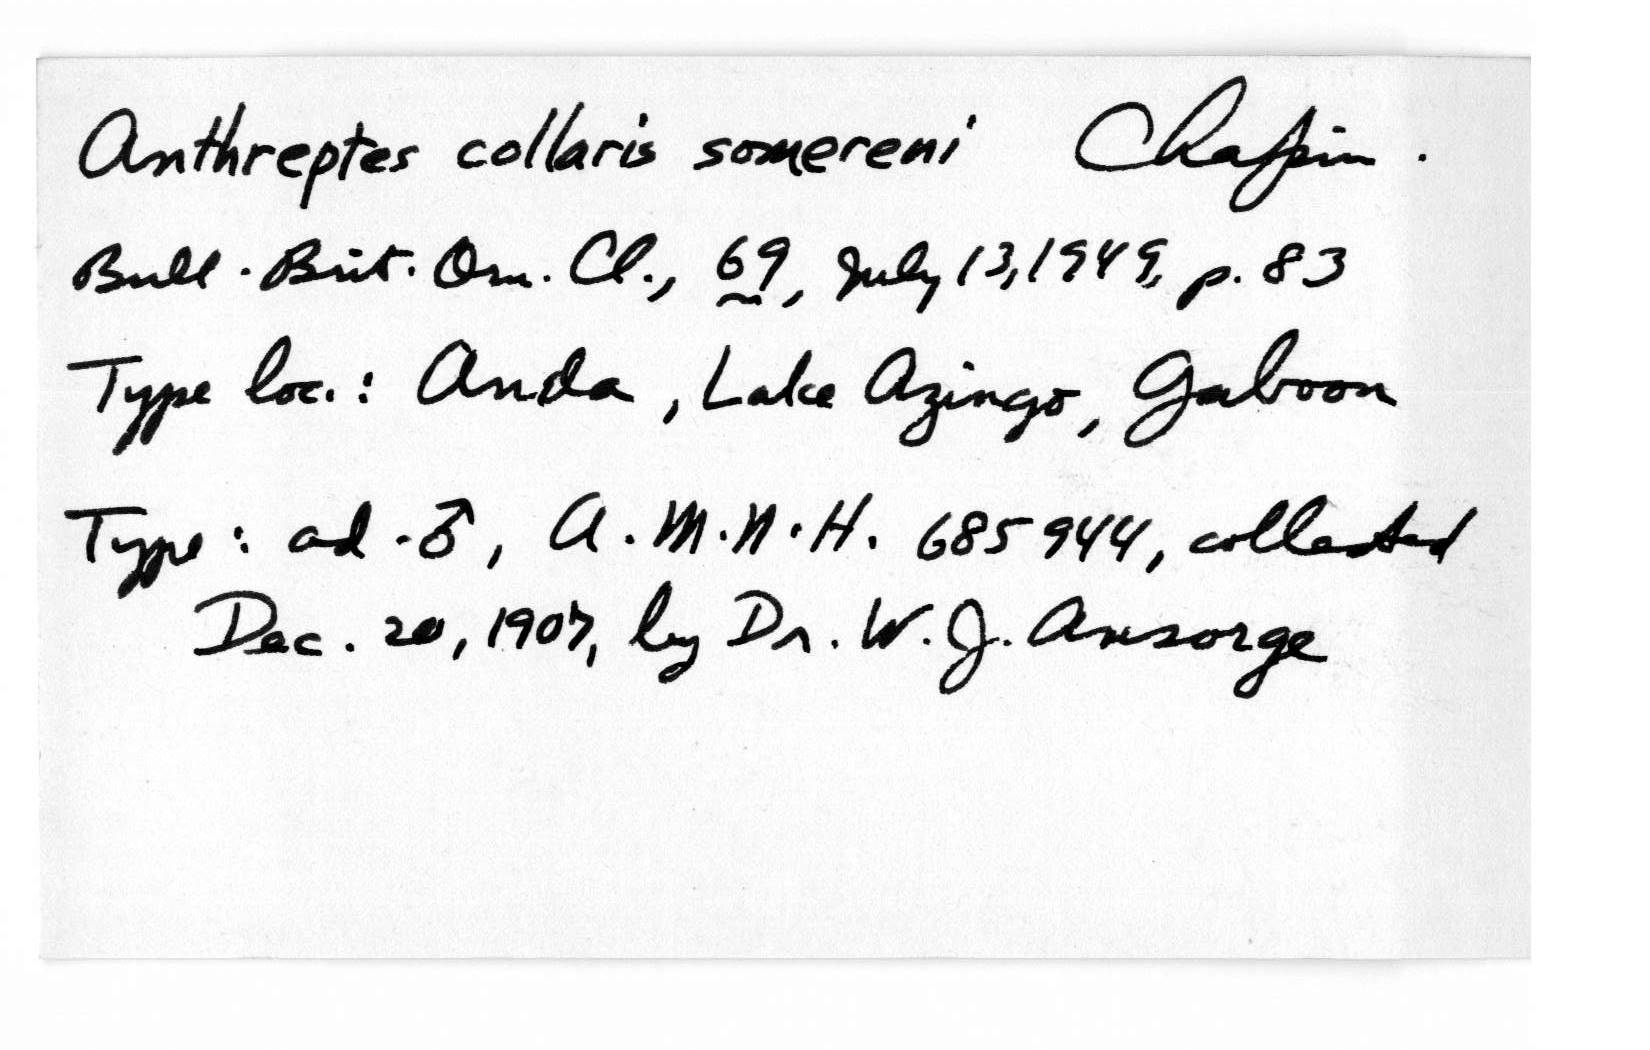 Anthreptes collaris somereni Chapin.
Bull. Brit. Orn. Cl., 69, July 13, 1949, p. 83
Type loc.: Anda, Lake Azingo, Gaboon
Type: ad. ♂, A.M.N.H. 685944, collected
Dec. 20, 1907, by Dr. W. J. Ansorge